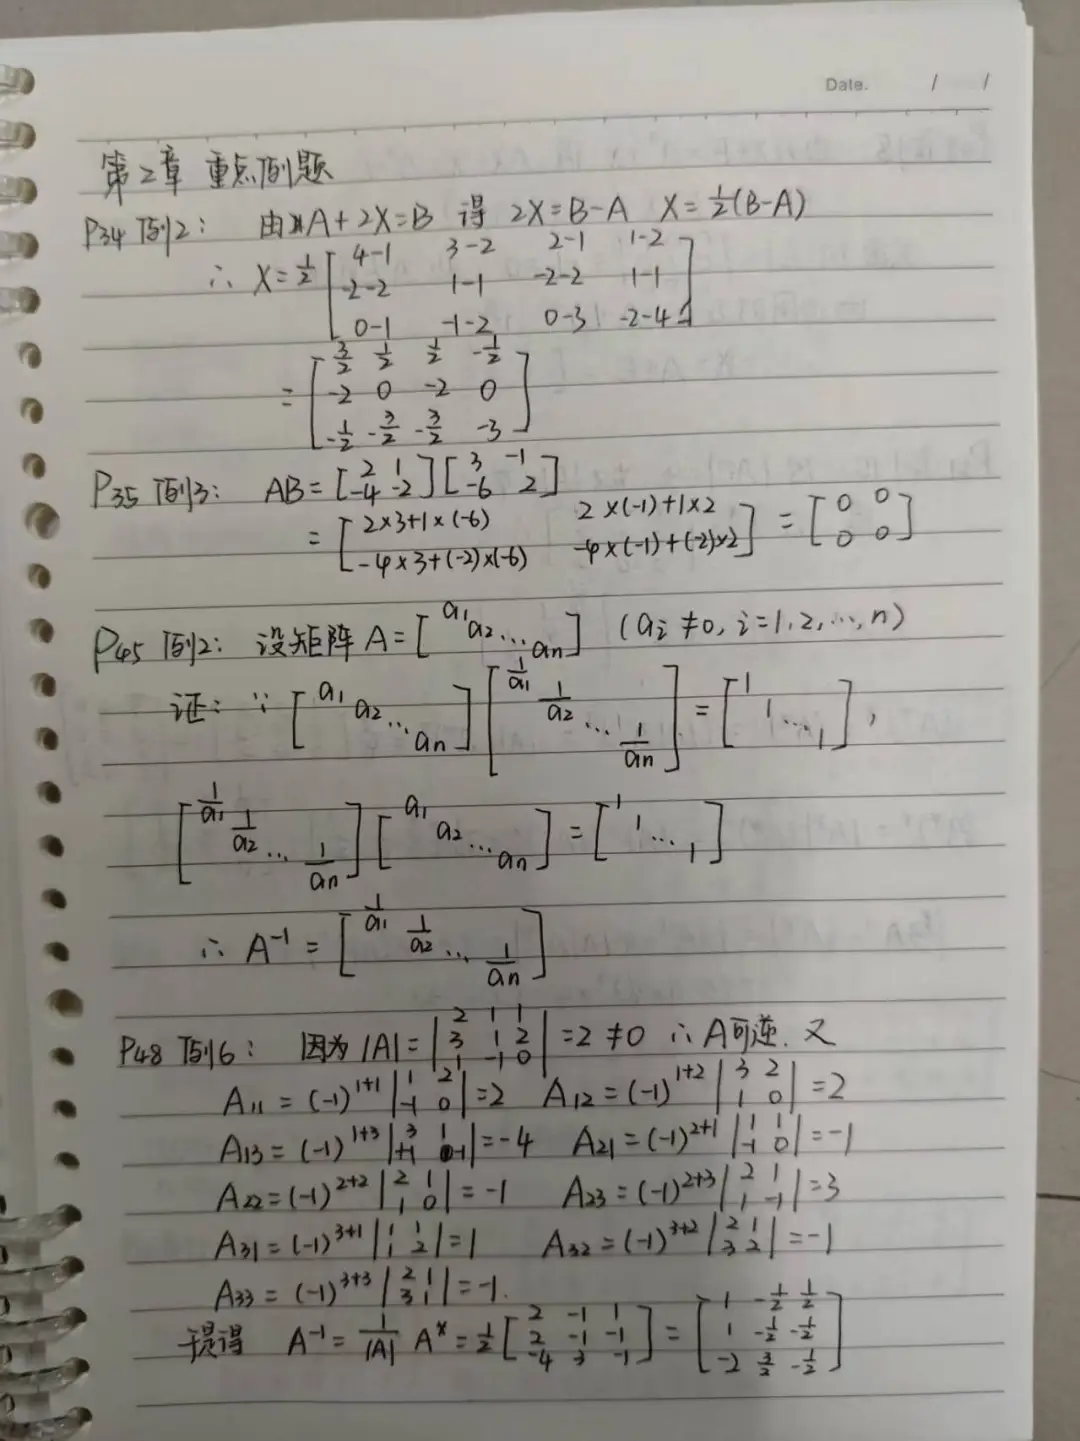 Date. / /
第2章 重点例题
P34 例2: 由A+2X=B 得 2X=B-A X=½(B-A)
∴ X=½ [4-1 3-2 2-1 1-2
-2-2 1-1 -2-2 1-1
0-1 -1-2 0-3 -2-4]
= [3/2 1/2 1/2 -1/2
-2 0 -2 0
-1/2 -3/2 -3/2 -3]
P35 例3: AB = [2 1 [3 -1
-4 -2] -6 2]
= [2×3+1×(-6) 2×(-1)+1×2 = [0 0
-4×3+(-2)×(-6) -4×(-1)+(-2)×2] 0 0]
P45 例2: 设矩阵 A = [a₁ a₂ ... aₙ] (aᵢ ≠0, i=1,2,...,n)
证: ∵ [a₁ a₂ ... aₙ] [1/a₁ 1/a₂ ... 1/aₙ] = [1 1 ... 1],
[1/a₁ 1/a₂ ... 1/aₙ] [a₁ a₂ ... aₙ] = [1 1 ... 1]
∴ A⁻¹ = [1/a₁ 1/a₂ ... 1/aₙ]
P48 例6: 因为 |A| = |2 1 1
3 1 2
1 -1 0| =2 ≠0 ∴ A可逆. 又
A₁₁ = (-1)¹⁺¹ |1 2
-1 0| =2 A₁₂ = (-1)¹⁺² |3 2
1 0| =2
A₁₃ = (-1)¹⁺³ |3 1
+1 -1| =-4 A₂₁ = (-1)²⁺¹ |1 1
-1 0| =-1
A₂₂ = (-1)²⁺² |2 1
1 0| =-1 A₂₃ = (-1)²⁺³ |2 1
1 -1| =3
A₃₁ = (-1)³⁺¹ |1 1
1 2| =1 A₃₂ = (-1)³⁺² |2 1
3 2| =-1
A₃₃ = (-1)³⁺³ |2 1
3 1| =-1.
于是得 A⁻¹ = 1/|A| A* = ½ [2 -1 1
2 -1 -1
-4 3 -1] = [1 -1/2 1/2
1 -1/2 -1/2
-2 3/2 -1/2]